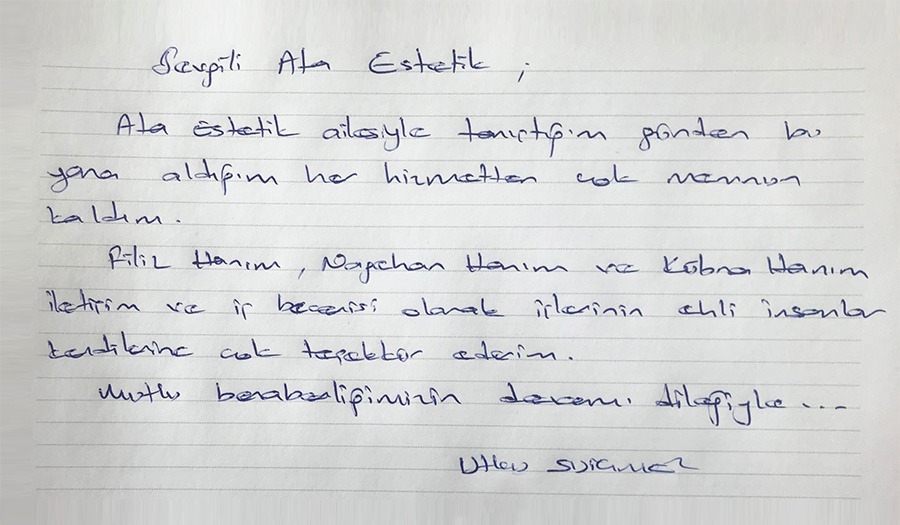 Sevgili Ata Estetik ;
Ata Estetik ailesiyle tanıştığım günden bu
yana aldığım her hizmetten çok memnun
kaldım.
Filiz Hanım, Nagehan Hanım ve Kübra Hanım
iletişim ve iş becerisi olarak işlerinin ehli insanlar
kendilerine çok teşekkür ederim.
Mutlu beraberliğimizin devamı dileğiyle ...